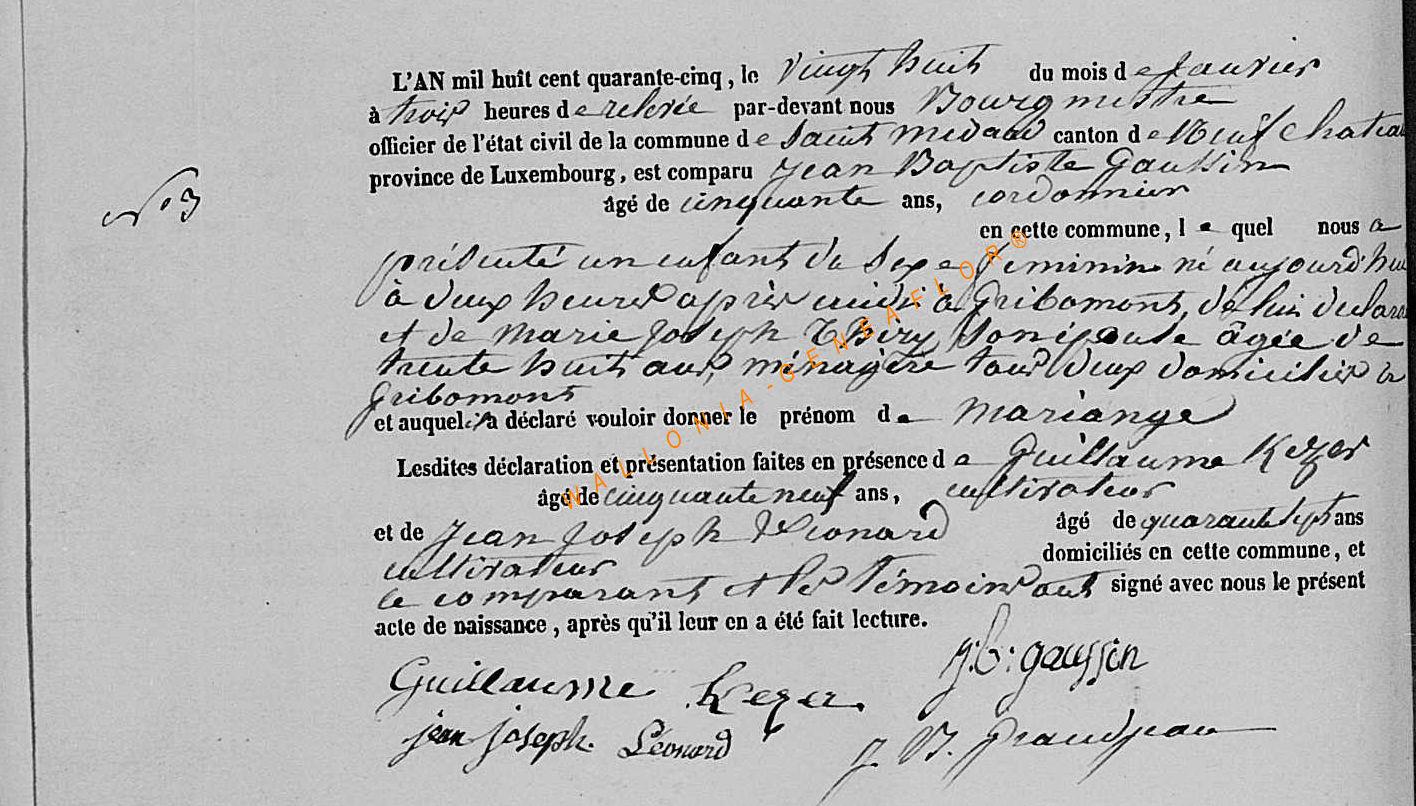 L'AN mil huit cent quarante-cinq, le vingt huit du mois de janvier
à trois heures de relevée par-devant nous Bourgmestre
officier de l'état civil de la commune de Saint Médard canton de Neufchateau
province de Luxembourg, est comparu Jean Baptiste Gaussin
âgé de cinquante ans, cordonnier
N° 3
en cette commune, lequel nous a
présenté un enfant du sexe feminin né aujourd'hui
à deux heures après midi à Gribomont, de lui déclarant
et de Marie Joseph Thiry son épouse âgée de
trente huit ans, ménagère tous deux domiciliés à
Gribomont
et auquel il a déclaré vouloir donner le prénom de Mariange
Lesdites déclaration et présentation faites en présence de Guillaume Kezer
âgé de cinquante neuf ans, cultivateur
et de Jean Joseph Léonard âgé de quarante sept ans
cultivateur domiciliés en cette commune, et
le comparant et les témoins ont signé avec nous le présent
acte de naissance, après qu'il leur en a été fait lecture.
j:b: gaussin
Guillaume Kezer
jean joseph Léonard J. B. Grandjean
WALLONIA-GENEAFLOR®